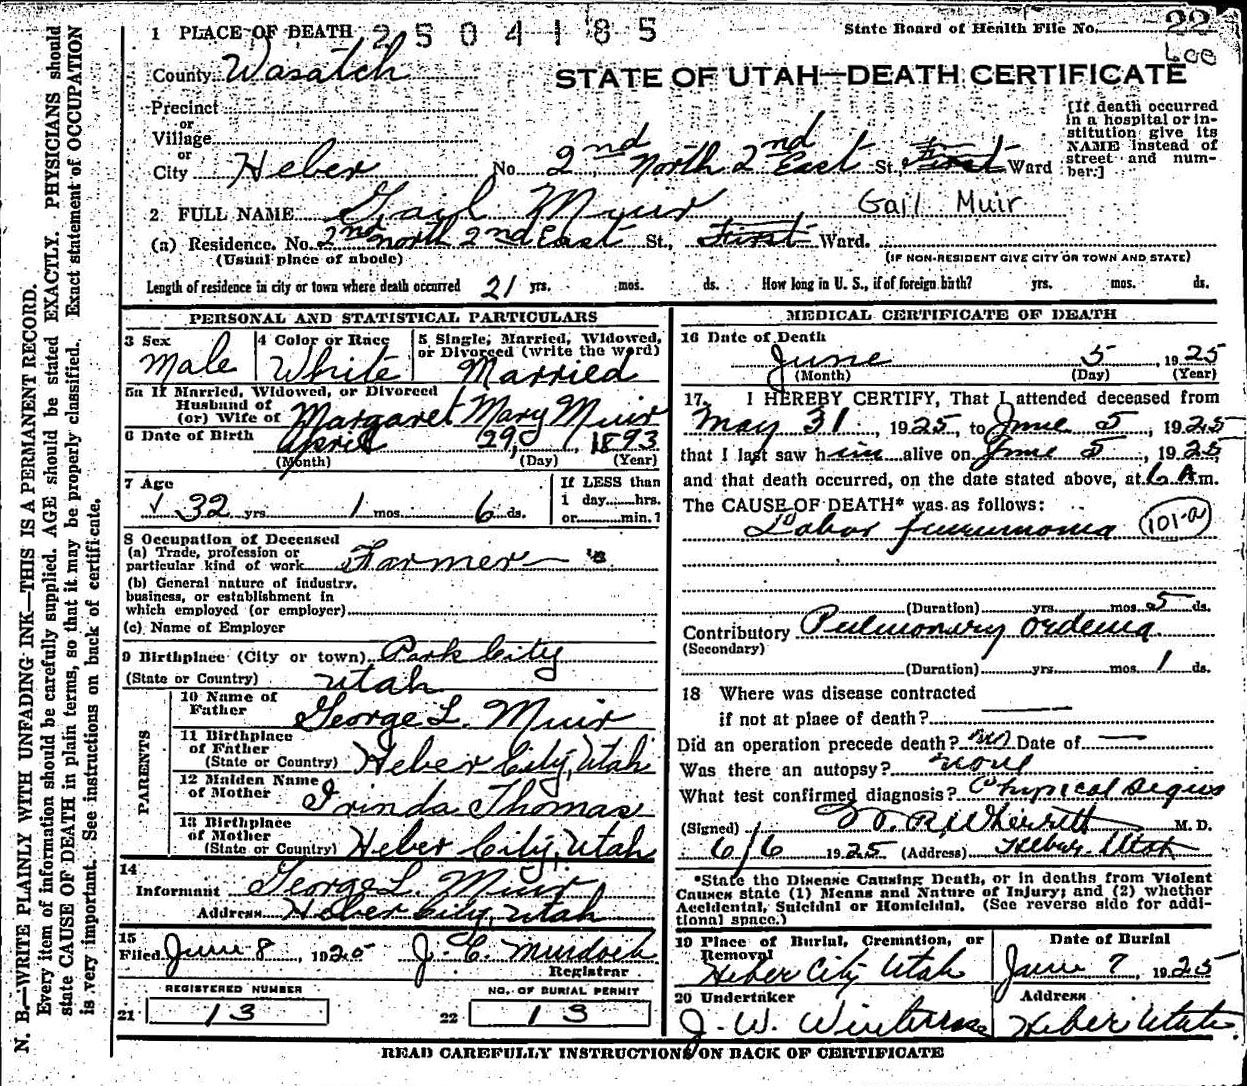 1 PLACE OF DEATH 2504185
State Board of Health File No. 22
County Wasatch
STATE OF UTAH—DEATH CERTIFICATE
Precinct
or
Village
or
City Heber No. 2nd North 2nd East St., First Ward
[If death occurred
in a hospital or in-
stitution give its
NAME instead of
street and num-
ber.]
2 FULL NAME Gail Muir Gail Muir
(a) Residence. No. 2nd north 2nd East St., First Ward.
(Usual place of abode) (IF NON-RESIDENT GIVE CITY OR TOWN AND STATE)
Length of residence in city or town where death occurred 21 yrs. mos. ds. How long in U. S., if of foreign birth? yrs. mos. ds.
PERSONAL AND STATISTICAL PARTICULARS
3 Sex
Male
4 Color or Race
White
5 Single, Married, Widowed,
or Divorced (write the word)
Married
5a If Married, Widowed, or Divorced
Husband of
(or) Wife of Margaret Mary Muir
6 Date of Birth April 29, 1893
(Month) (Day) (Year)
7 Age
32 yrs. 1 mos. 6 ds.
If LESS than
1 day......hrs.
or......min.?
8 Occupation of Deceased
(a) Trade, profession or
particular kind of work Farmer
(b) General nature of industry,
business, or establishment in
which employed (or employer)
(c) Name of Employer
9 Birthplace (City or town) Park City
(State or Country) Utah
PARENTS
10 Name of
Father George L. Muir
11 Birthplace
of Father
(State or Country) Heber City, Utah
12 Maiden Name
of Mother Irinda Thomas
13 Birthplace
of Mother
(State or Country) Heber City, Utah
14
Informant George L. Muir
Address Heber City, Utah
15
Filed June 8, 1925 J. C. Murdock
Registrar
REGISTERED NUMBER NO. OF BURIAL PERMIT
21 13 22 13
MEDICAL CERTIFICATE OF DEATH
16 Date of Death
June 5 1925
(Month) (Day) (Year)
17. I HEREBY CERTIFY, That I attended deceased from
May 31, 1925, to June 5, 1925
that I last saw him alive on June 5, 1925,
and that death occurred, on the date stated above, at 6 A m.
The CAUSE OF DEATH* was as follows:
Lobar pneumonia 101-a
(Duration) yrs. mos. 5 ds.
Contributory Pulmonary oedema
(Secondary)
(Duration) yrs. mos. 1 ds.
18 Where was disease contracted
if not at place of death?
Did an operation precede death? no Date of —
Was there an autopsy? none
What test confirmed diagnosis? Physical signs
(Signed) W. R. Wherritt M. D.
6/6 1925 (Address) Heber Utah
*State the Disease Causing Death, or in deaths from Violent
Causes state (1) Means and Nature of Injury; and (2) whether
Accidental, Suicidal or Homicidal. (See reverse side for addi-
tional space.)
19 Place of Burial, Cremation, or
Removal
Heber City Utah
Date of Burial
June 7, 1925
20 Undertaker
J. W. Winterrose
Address
Heber Utah
READ CAREFULLY INSTRUCTIONS ON BACK OF CERTIFICATE
N. B.—WRITE PLAINLY WITH UNFADING INK—THIS IS A PERMANENT RECORD.
Every item of information should be carefully supplied. AGE should be stated EXACTLY. PHYSICIANS should
state CAUSE OF DEATH in plain terms, so that it may be properly classified. Exact statement of OCCUPATION
is very important. See instructions on back of certificate.